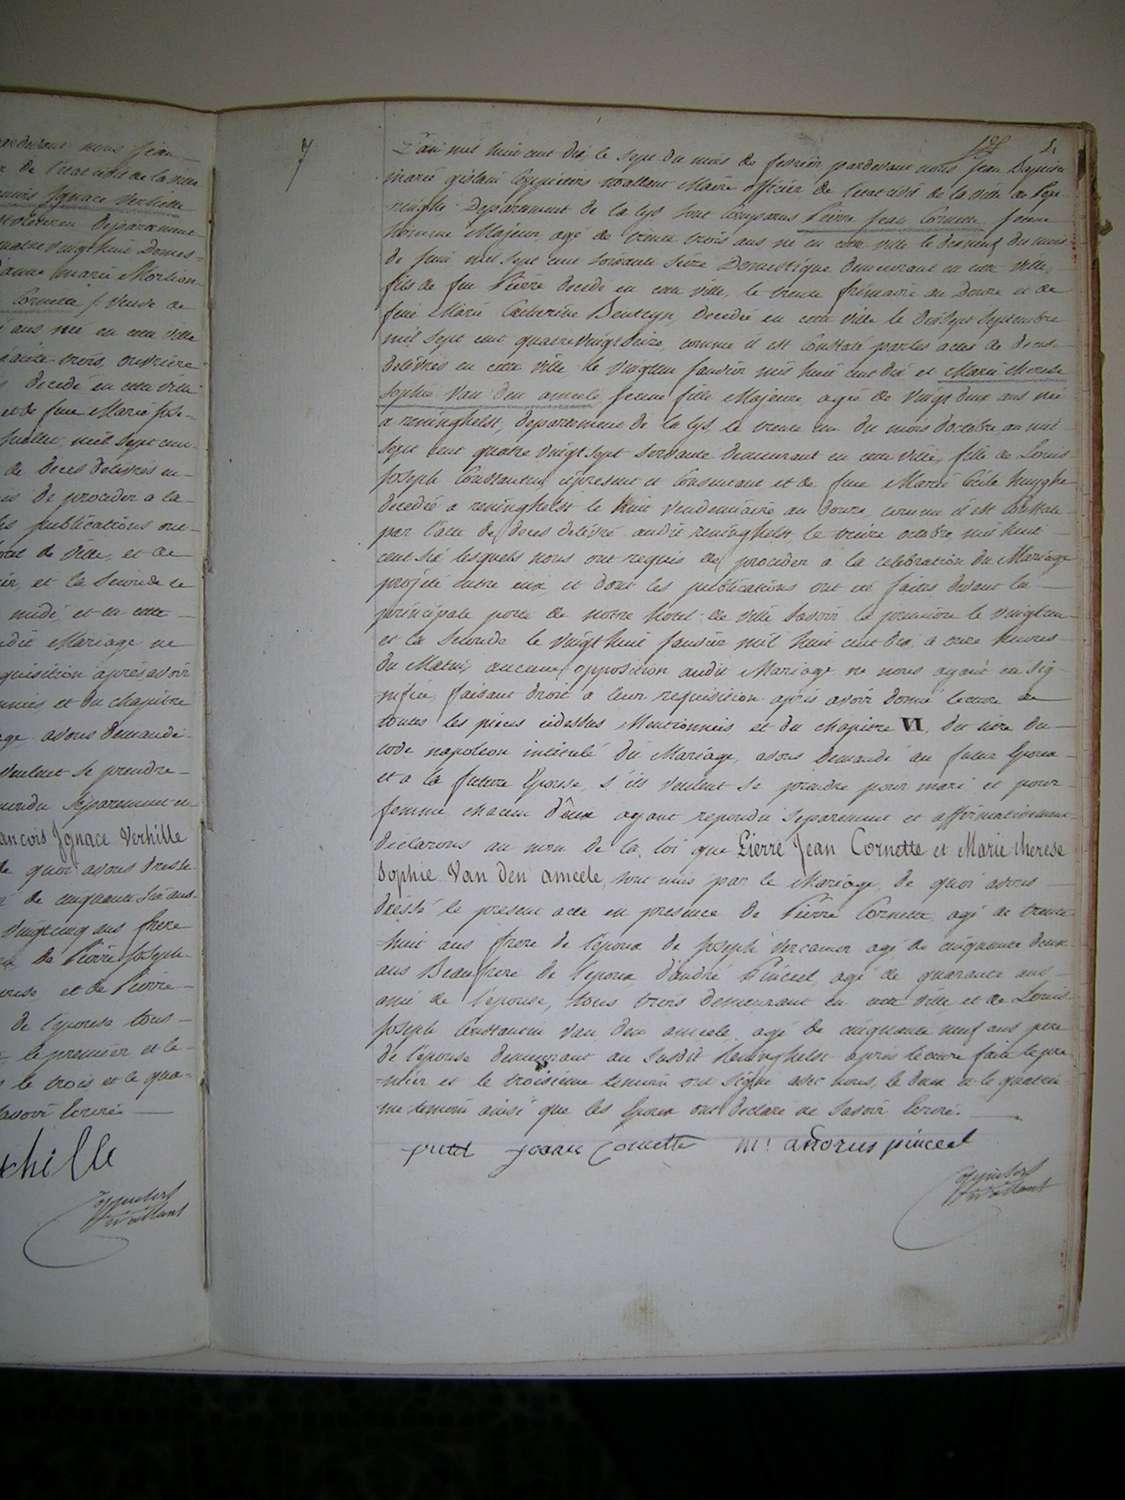 pardevant nous Jean
r de l'etat civil de la ville
ancois Ignace Verhille
Departement
quatre vingt huit Domes=
Jeanne Marie Morlion
Cornette veuve de
ans née en cette ville
soixante trois, ouvriere
decede en cette ville
et de feue Marie Jose-
juillet mil sept cent
de deces delivrés en
de proceder a la
les publications ont
hotel de ville, et de
et la seconde le
midi et en cette
audit Mariage ne
requisition après avoir
et du chapitre
avons demandé
veulent se prendre
repondu separement et
ancois Ignace Verhille
de quoi avons dressé
de cinquante six ans
vingt cinq ans frere
de Pierre Joseph
et de Pierre
de l'epouse tous
le premier et le
le trois et le qua-
savoir ecrire
chille
7
L'an mil huit cent dix le sept du mois de fevrier pardevant nous Jean Baptiste
Marie Gislain Coppieters Wallant Maire officier de l'etat civil de la ville de Pope
ringhe Departement de la Lys sont comparus Pierre Jean Cornette jeune
homme Majeur, agé de trente trois ans né en cette ville le dix neuf du mois
de juin mil sept cent soixante seize Domestique demeurant en cette ville,
fils de feu Pierre decedé en cette ville, le trente frimaire an Douze et de
feue Marie Catherine Beuteyn, decedée en cette ville le dix sept septembre
mil sept cent quatre vingt seize, comme il est constaté par les actes de deces
delivrés en cette ville le vingt un janvier mil huit cent dix et Marie therese
Sophie Van den amcele jeune fille Majeure, agée de vingt deux ans née
a reninghelst, departement de la Lys le trente un du mois d'octobre an mil
sept cent quatre vingt sept servante demeurant en cette ville, fille de Louis
Joseph Constantin ci present et Consentant et de feue Marie Cecile huyghe
decedée a reninghelst le huit vendemiaire an douze, comme il est constaté
par l'acte de deces delivré audit reninghelst le treize octobre mil huit
cent six lesquels nous ont requis de proceder a la celebration du Mariage
projeté entre eux et dont les publications ont été faites devant la
principale porte de notre hotel de ville savoir la premiere le vingt un
et la seconde le vingt huit janvier mil huit cent dix, a onze heures
du Matin, aucune opposition audit Mariage ne nous ayant eté sig-
nifiée, faisant droit a leur requisition après avoir donné lecture de
toutes les pieces cidessus Mentionnées et du chapitre VI, du titre du
code napoleon intitulé du Mariage, avons demandé au futur Epoux
et a la future Epouse, s'ils veulent se prendre pour mari et pour
femme, chacun d'eux ayant repondu separement et affirmativement
declarons au nom de la loi que Pierre Jean Cornette et Marie therese
Sophie Van den amcele, sont unis par le Mariage, de quoi avons
dressé le present acte en presence de Pierre Cornette, agé de trente
huit ans frere de l'epoux de Joseph Vercamer agé de cinquante deux
ans Beaufrere de l'epoux d'andré Pinceel, agé de quarante ans
ami de l'epouse, tous trois demeurant en cette ville et de Louis
Joseph Constantin Van den amcele, agé de cinquante neuf ans pere
de l'epouse demeurant au susdit Reninghelst après lecture faite le pre
mier et le troisieme temoin ont signé avec nous, le deux et le quatrie
me temoin ainsi que les Epoux ont declaré ne savoir Ecrire.
Cornette andreis pinceel